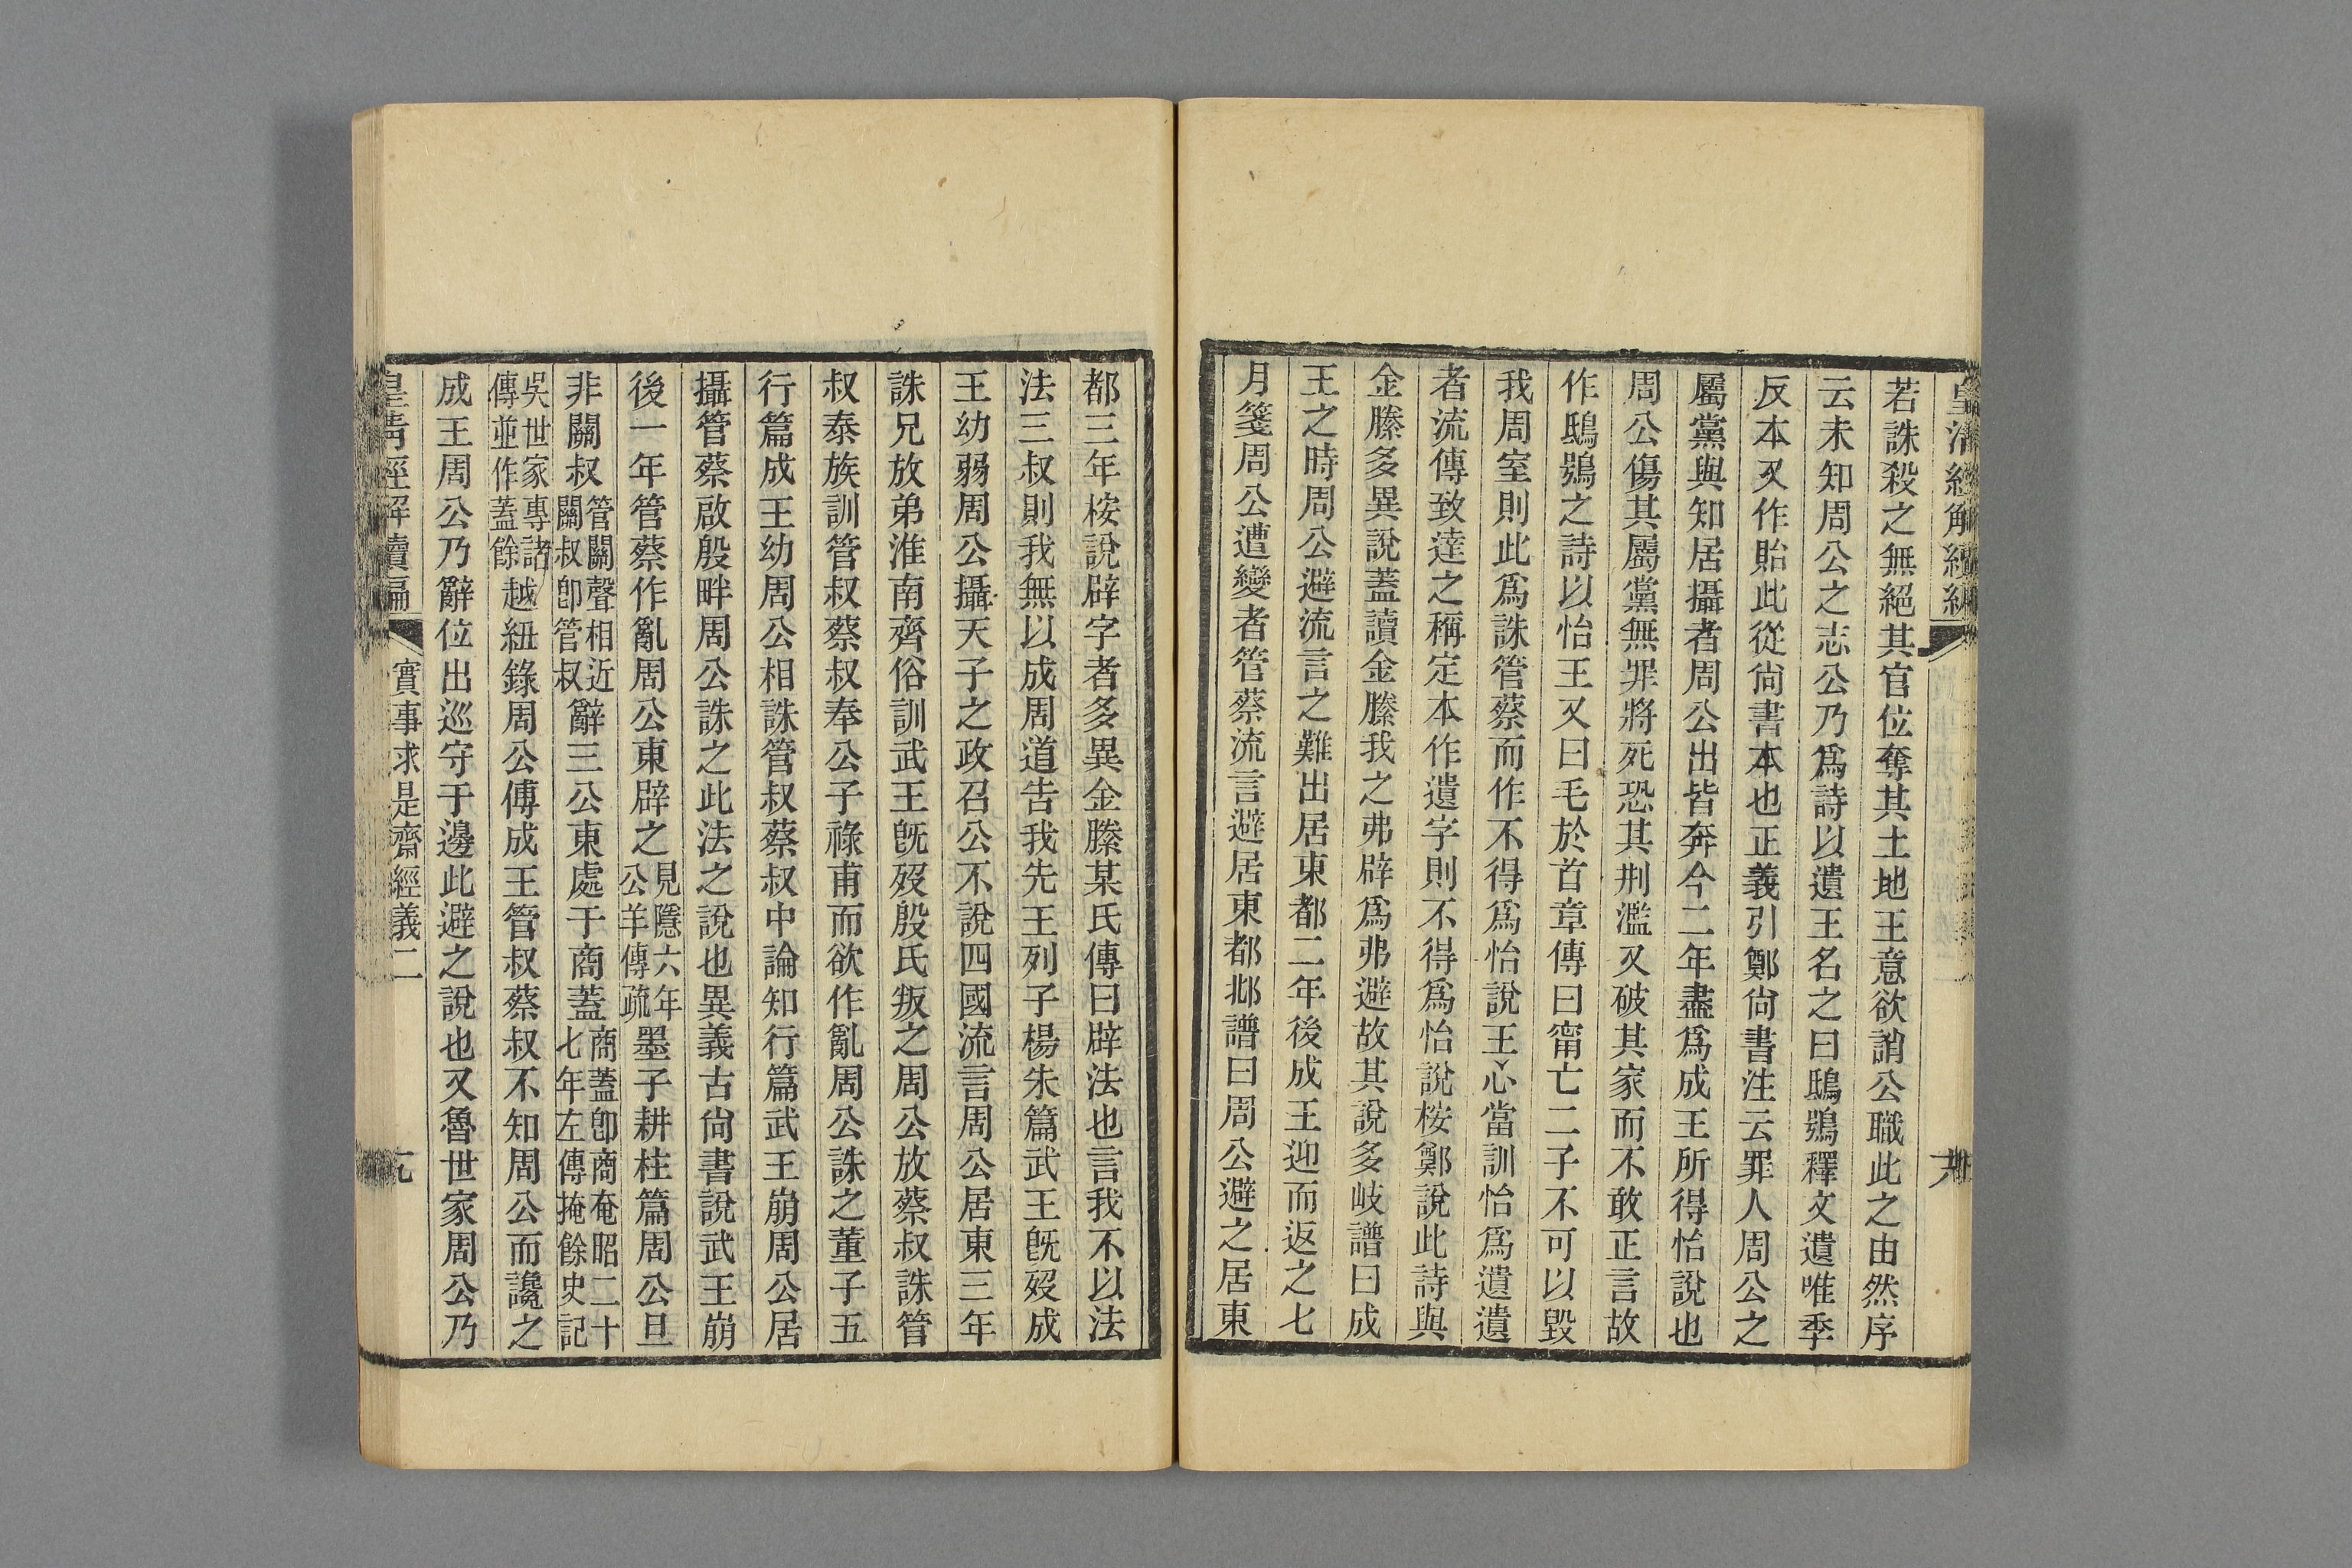 皇清經解續編
若誅殺之無絕其官位奪其土地王意欲誚公職此之由然序
云未知周公之志公乃爲詩以遺王名之曰鴟鴞釋文遺唯季
反本又作貽此從尙書本也正義引鄭尙書注云罪人周公之
屬黨與知居攝者周公出皆奔今二年盡爲成王所得怡說也
周公傷其屬黨無罪將死恐其刑濫又破其家而不敢正言故
作鴟鴞之詩以怡王又曰毛於首章傳曰甯亡二子不可以毀
我周室則此爲誅管蔡而作不得爲怡說王心當訓怡爲遺遺
者流傳致達之稱定本作遺字則不得爲怡說桉鄭說此詩與
金縢多異說蓋讀金縢我之弗辟爲弗避故其說多岐譜曰成
王之時周公避流言之難出居東都二年後成王迎而返之七
月箋周公遭變者管蔡流言避居東都邶譜曰周公避之居東
都三年桉說辟字者多異金縢某氏傳曰辟法也言我不以法
法三叔則我無以成周道告我先王列子楊朱篇武王旣歿成
王幼弱周公攝天子之政召公不說四國流言周公居東三年
誅兄放弟淮南齊俗訓武王旣歿殷氏叛之周公放蔡叔誅管
叔泰族訓管叔蔡叔奉公子祿甫而欲作亂周公誅之董子五
行篇成王幼周公相誅管叔蔡叔中論知行篇武王崩周公居
攝管蔡啟殷畔周公誅之此法之說也異義古尙書說武王崩
後一年管蔡作亂周公東辟之見隱六年公羊傳疏墨子耕柱篇周公旦
非關叔管關聲相近關叔卽管叔辭三公東處于商蓋商蓋卽商奄昭二十七年左傳掩餘史記
吳世家專諸傳並作蓋餘越紐錄周公傅成王管叔蔡叔不知周公而讒之
成王周公乃辭位出巡守于邊此避之說也又魯世家周公乃
皇淸經解續編 實事求是齋經義二